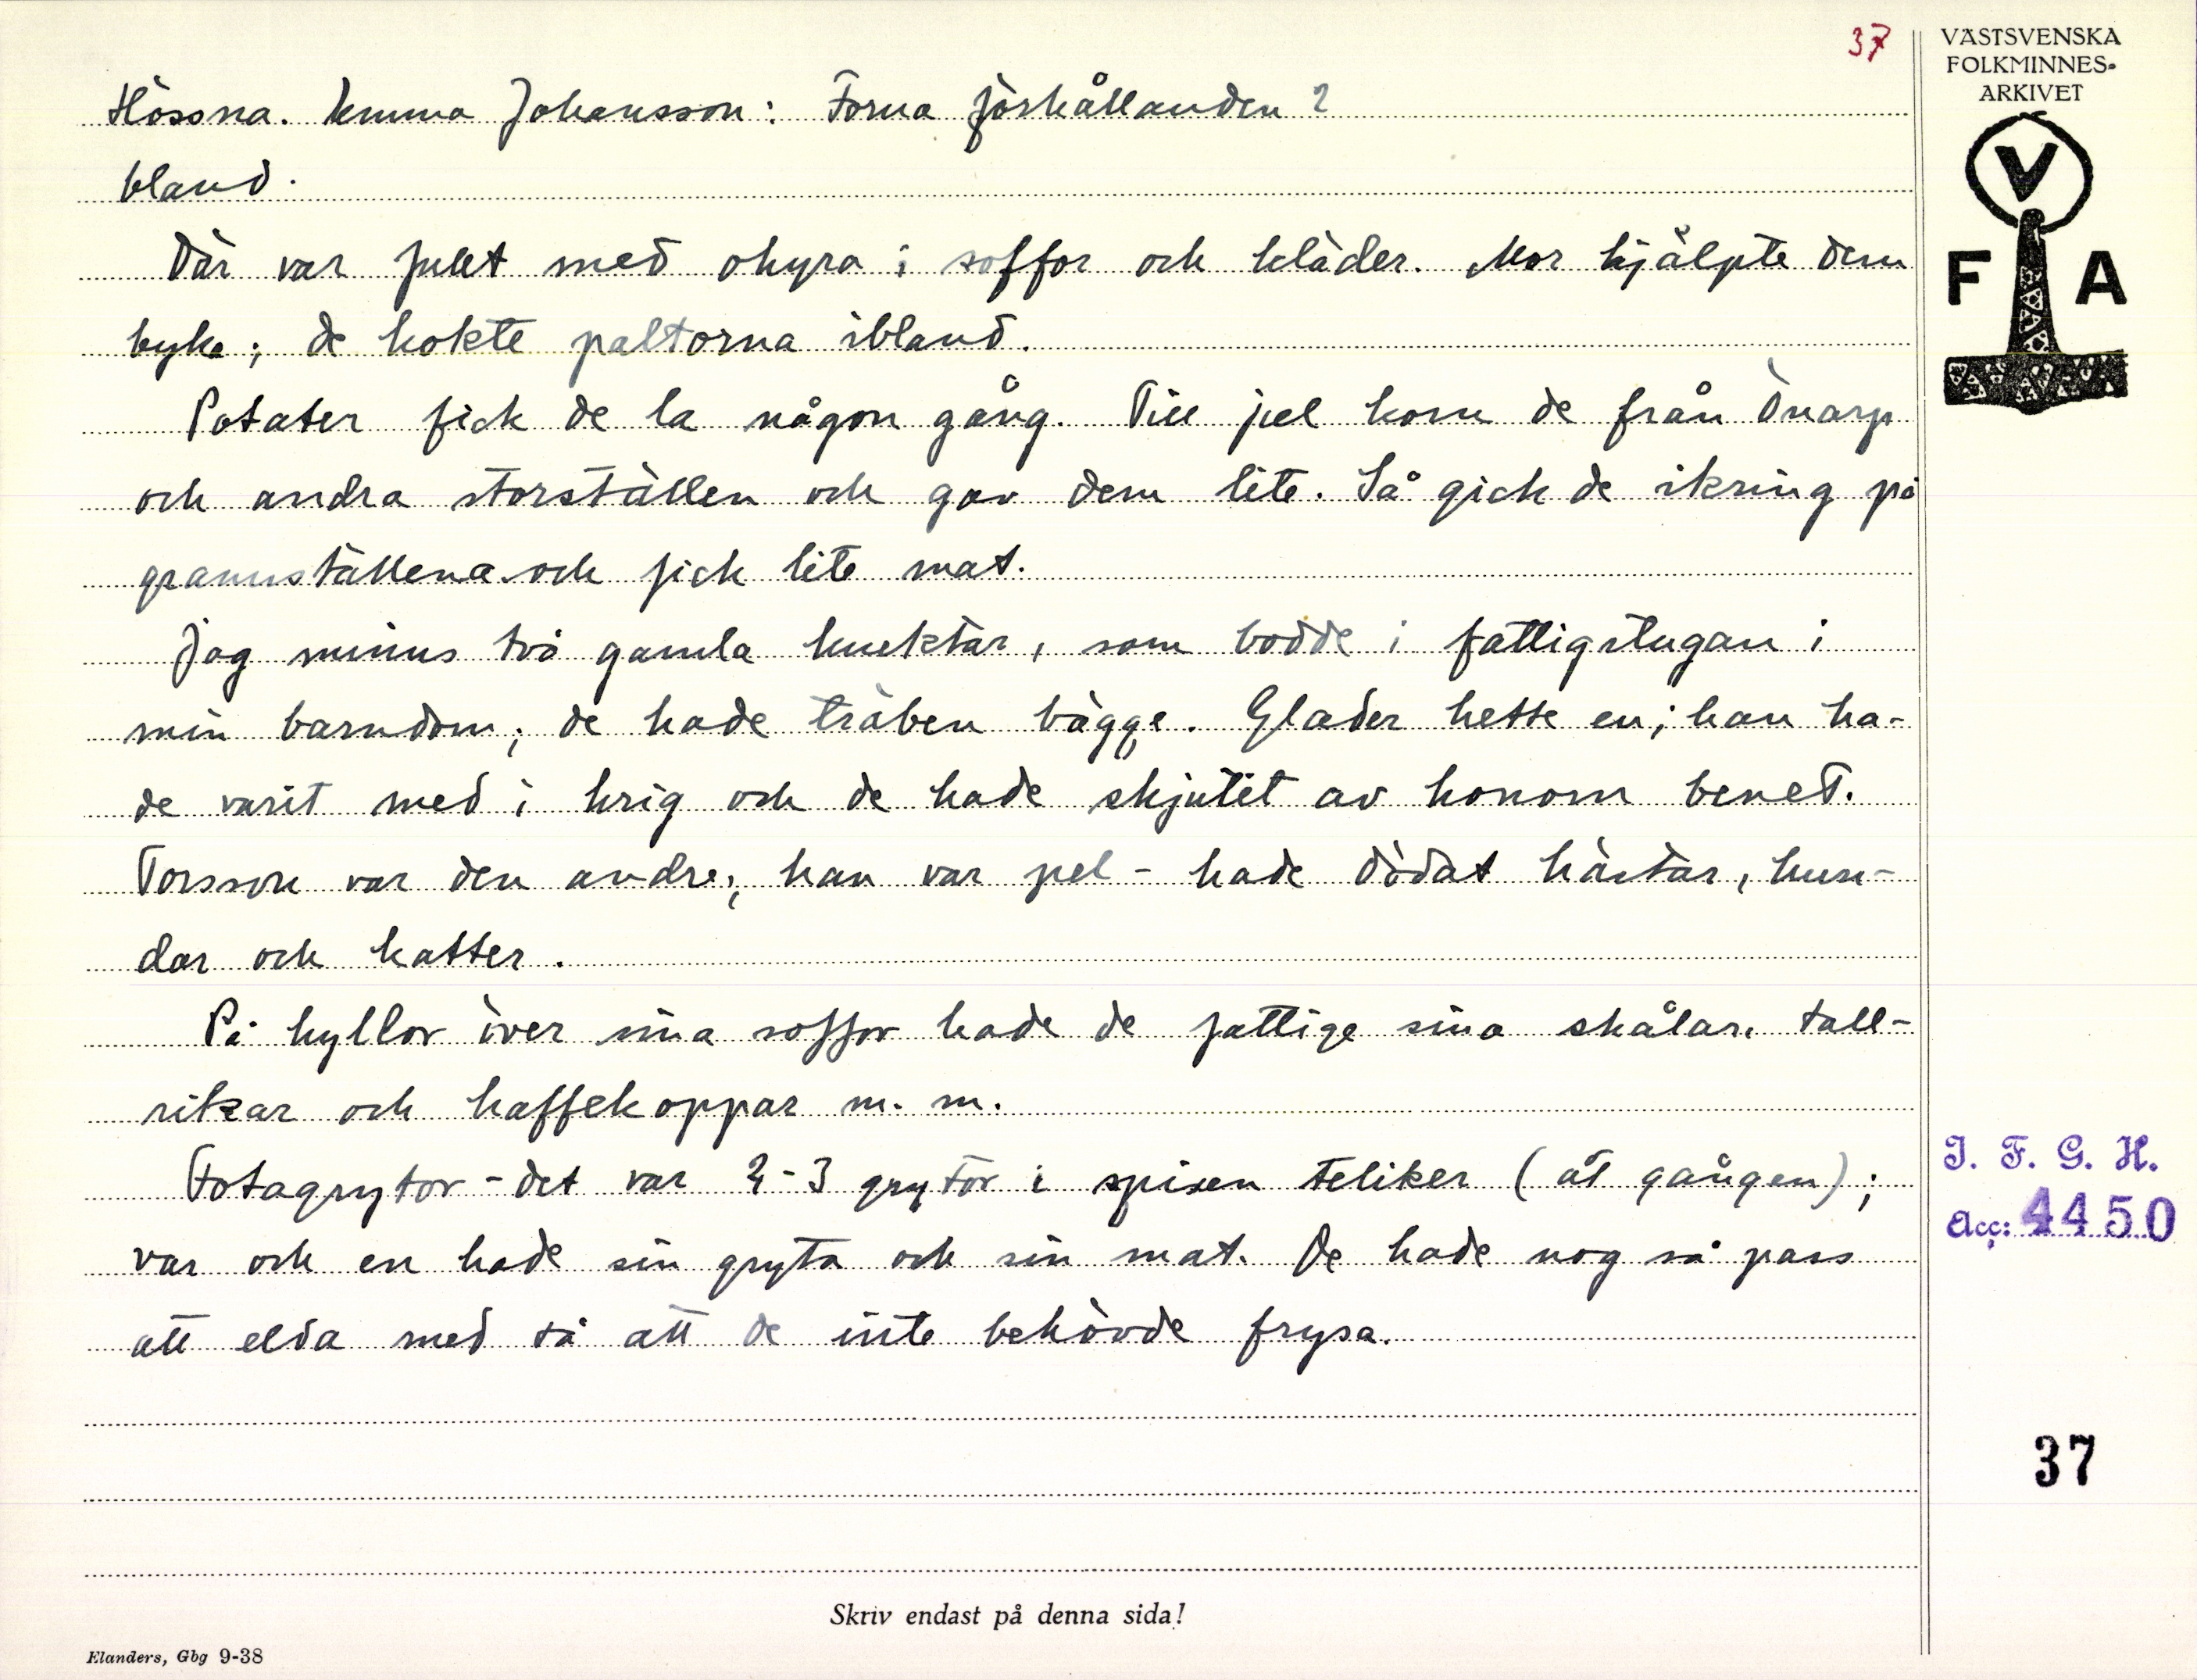 37
Hössna. Emma Johansson: Forna förhållanden 2
bland.
Där var fullt med ohyra i soffor och kläder. Mor hjälpte dem
byka; de kokte paltorna ibland.
Potater fick de la någon gång. Till jul kom de från Önarp
och andra storställen och gav dem lite. Så gick de ikring på
grannställena och fick lite mat.
Jag minns två gamla knektar, som bodde i fattigstugan i
min barndom; de hade träben bägge. Glader hette en; han ha-
de varit med i krig och de hade skjutit av honom benet.
Torsson var den andre; han var pel - hade dödat hästar, hun-
dar och katter.
På hyllor över sina soffor hade de fattige sina skålar, tall-
rikar och kaffekoppar m. m.
Fotagrytor - det var 2-3 grytor i spisen teliker (åt gången);
var och en hade sin gryta och sin mat. De hade nog så pass
att elda med så att de inte behövde frysa.
Skriv endast på denna sida!
Elanders, Gbg 9-38
VÄSTSVENSKA
FOLKMINNES-
ARKIVET
V
F A
I. F. G. H.
Acc: 4450
37